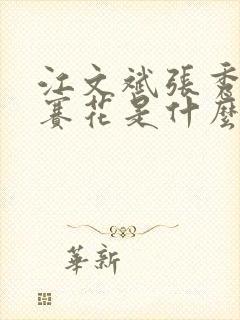 江文斌張秀
賽花是什麼
華新